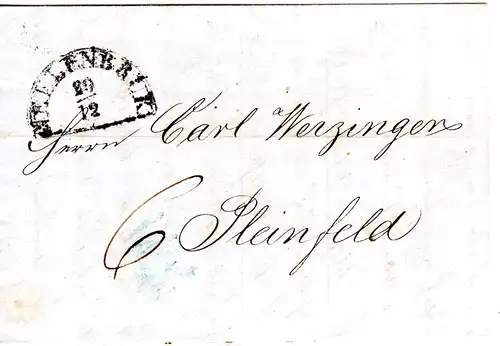 29
12
Herrn Carl Werzinger
6 Pleinfeld